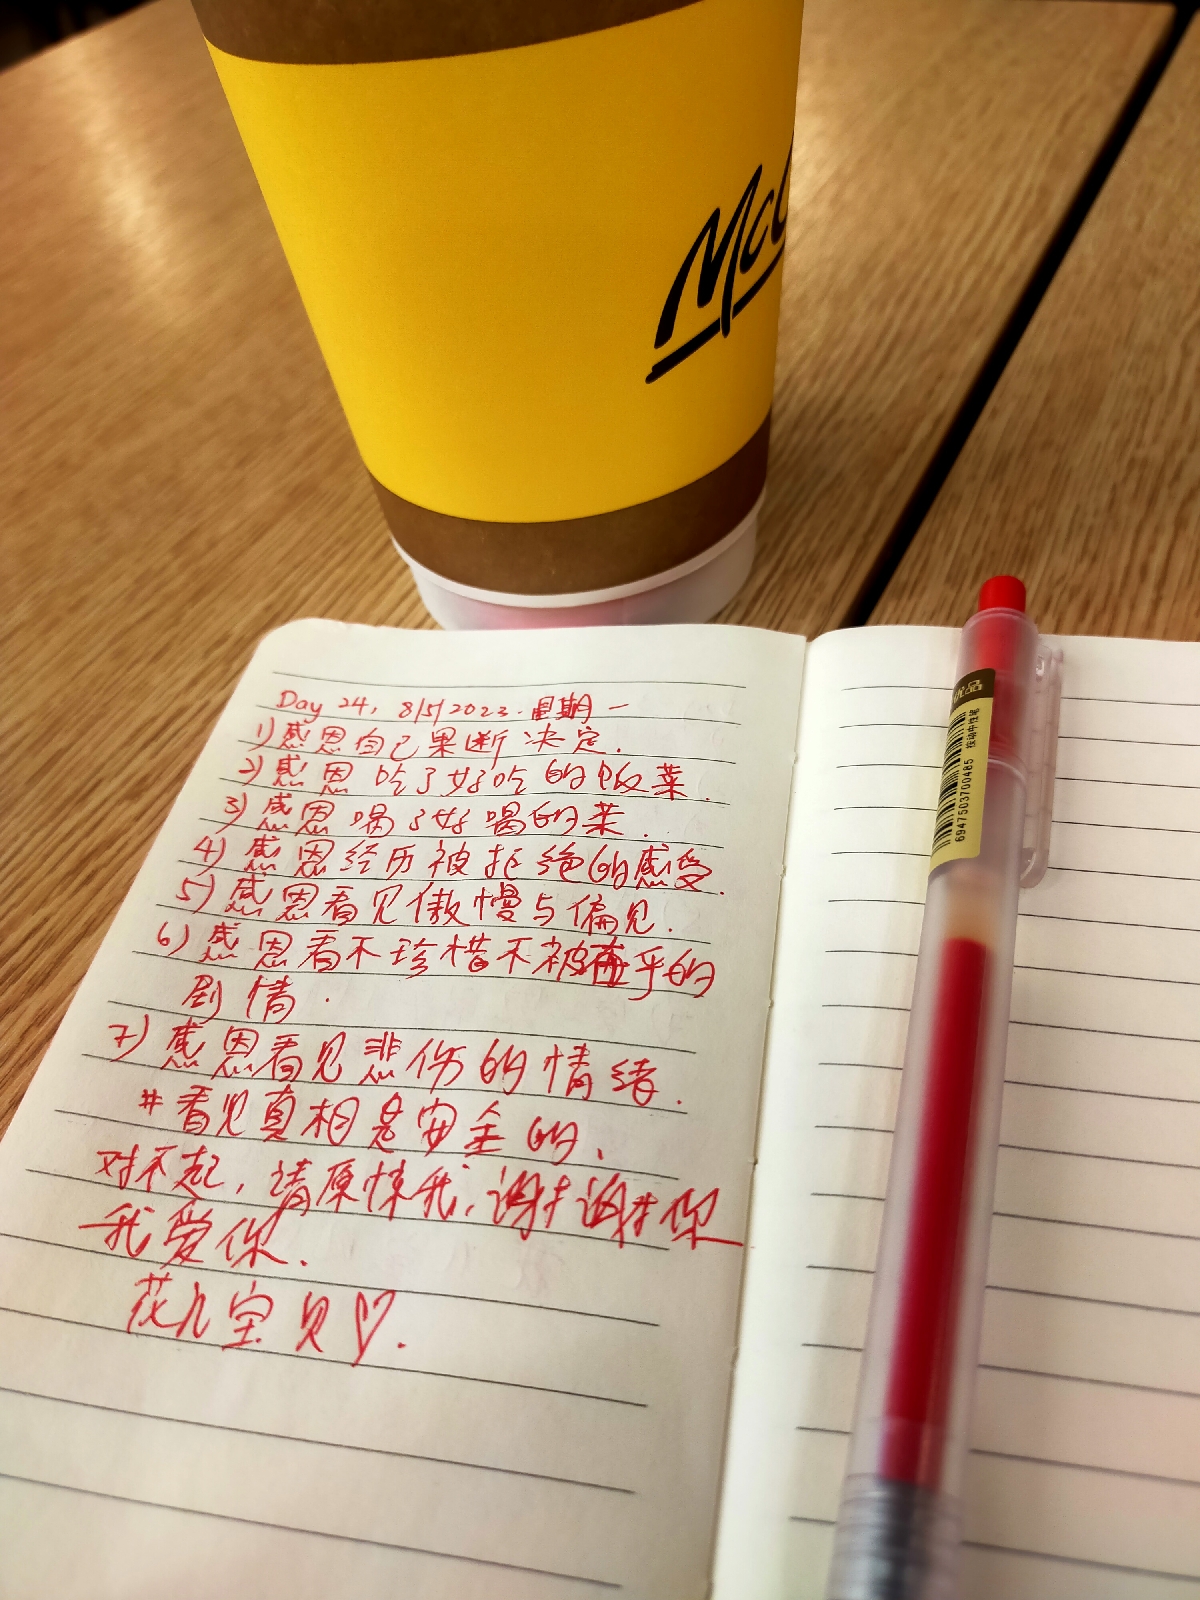 McC
Day 24, 8/5/2023. 星期一
1) 感恩自己果断决定.
2) 感恩吃了好吃的饭菜.
3) 感恩喝了好喝的茶.
4) 感恩经历被拒绝的感受.
5) 感恩看见傲慢与偏见.
6) 感恩看不珍惜不被在乎的
剧情.
7) 感恩看见悲伤的情绪.
#看见真相是安全的、
对不起, 请原谅我, 谢谢你
我爱你.
花儿宝贝♡.
优品
按动中性笔
6947503700485